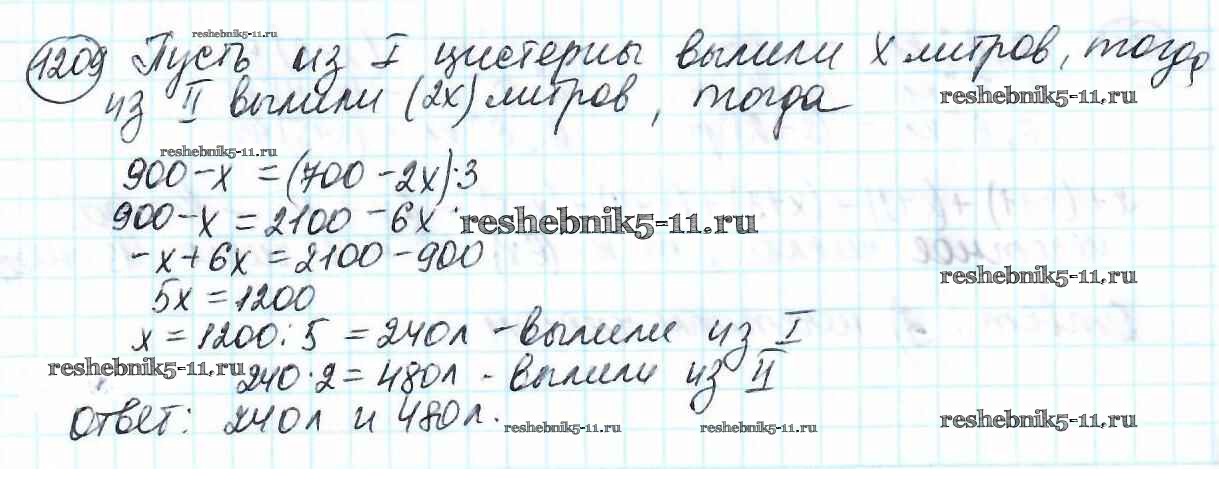 reshebnik5-11.ru
1209 Пусть из I цистерны вылили x литров, тогда
из II вылили (2x) литров, тогда
reshebnik5-11.ru
reshebnik5-11.ru
900 - x = (700 - 2x)·3
900 - x = 2100 - 6x
reshebnik5-11.ru
-x + 6x = 2100 - 900
reshebnik5-11.ru
5x = 1200
x = 1200 : 5 = 240л - вылили из I
reshebnik5-11.ru
240·2 = 480л - вылили из II
Ответ: 240л и 480л.
reshebnik5-11.ru reshebnik5-11.ru reshebnik5-11.ru